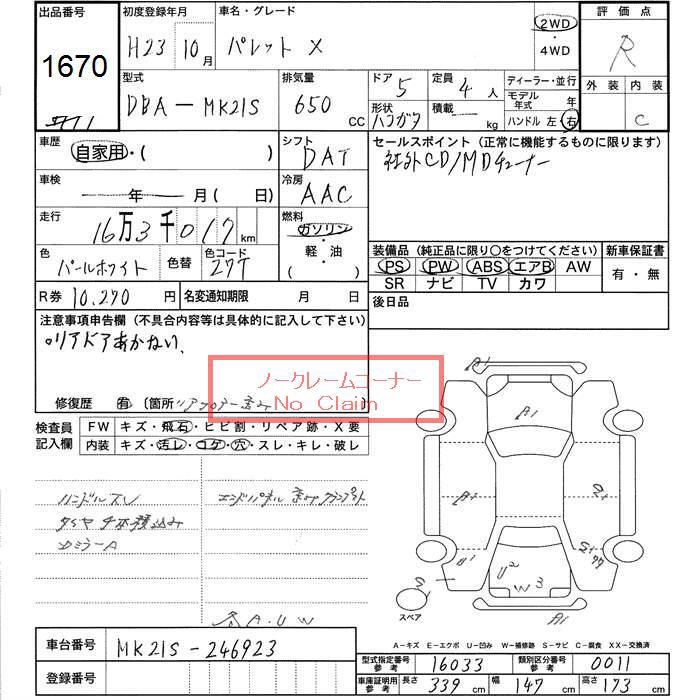 出品番号 初度登録年月 車名・グレード 2WD 評価点
1670 H23 10月 パレット X ・4WD R
型式 排気量 ドア 5 定員 4人 ディーラー・並行 外装 内装
DBA-MK21S 650 CC 形状 ハコガタ 積載 ― kg モデル年式 年 C
ハンドル 左・右
車歴 自家用・( ) シフト DAT セールスポイント (正常に機能するものに限ります)
社外CD/MDチューナー
車検 ― 年 月( 日) 冷房 AAC
走行 16万3千017km 燃料 ガソリン・軽・油( )
色 パールホワイト 色替 色コード Z7T
装備品 (純正品に限り○をつけてください) 新車保証書
PS PW ABS エアB AW 有・無
SR ナビ TV カワ
R券 10,290円 名変通知期限 月 日 後日品
注意事項申告欄 (不具合内容等は具体的に記入して下さい)
リアドアあかない、
ノークレームコーナー
No Claim
修復歴 有 〔箇所
検査員記入欄 FW キズ・飛石・ヒビ割・リペア跡・X要
内装 キズ・汚レ・コゲ・穴・スレ・キレ・破レ
ハンドルスレ エンドパネル
タイヤ4本積込み
A1
A1
A2
U1
U2
W3
A1
スペア
各A.U.W
A-キズ E-エクボ U-凹み W-補修跡 S-サビ C-腐食 XX-交換済
車台番号 MK21S-246923
登録番号
型式指定番号 参考 16033 類別区分番号 参考 0011
車庫証明用 参考 長さ 339cm 幅 147cm 高さ 173cm